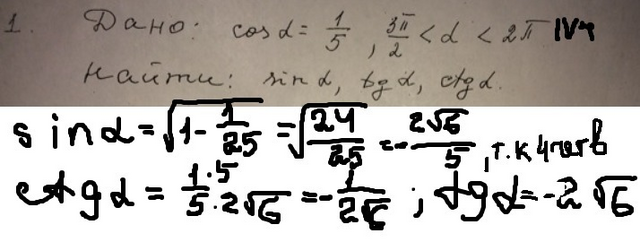 1. Дано: cos α = 1/5, 3π/2 < α < 2π IV ч
Найти: sin α, tg α, ctg α.
sin α = √(1 - 1/25) = √(24/25) = -2√6/5, т.к 4 четв
ctg α = 1·5/5·2√6 = -1/2√6 ; tg α = -2√6